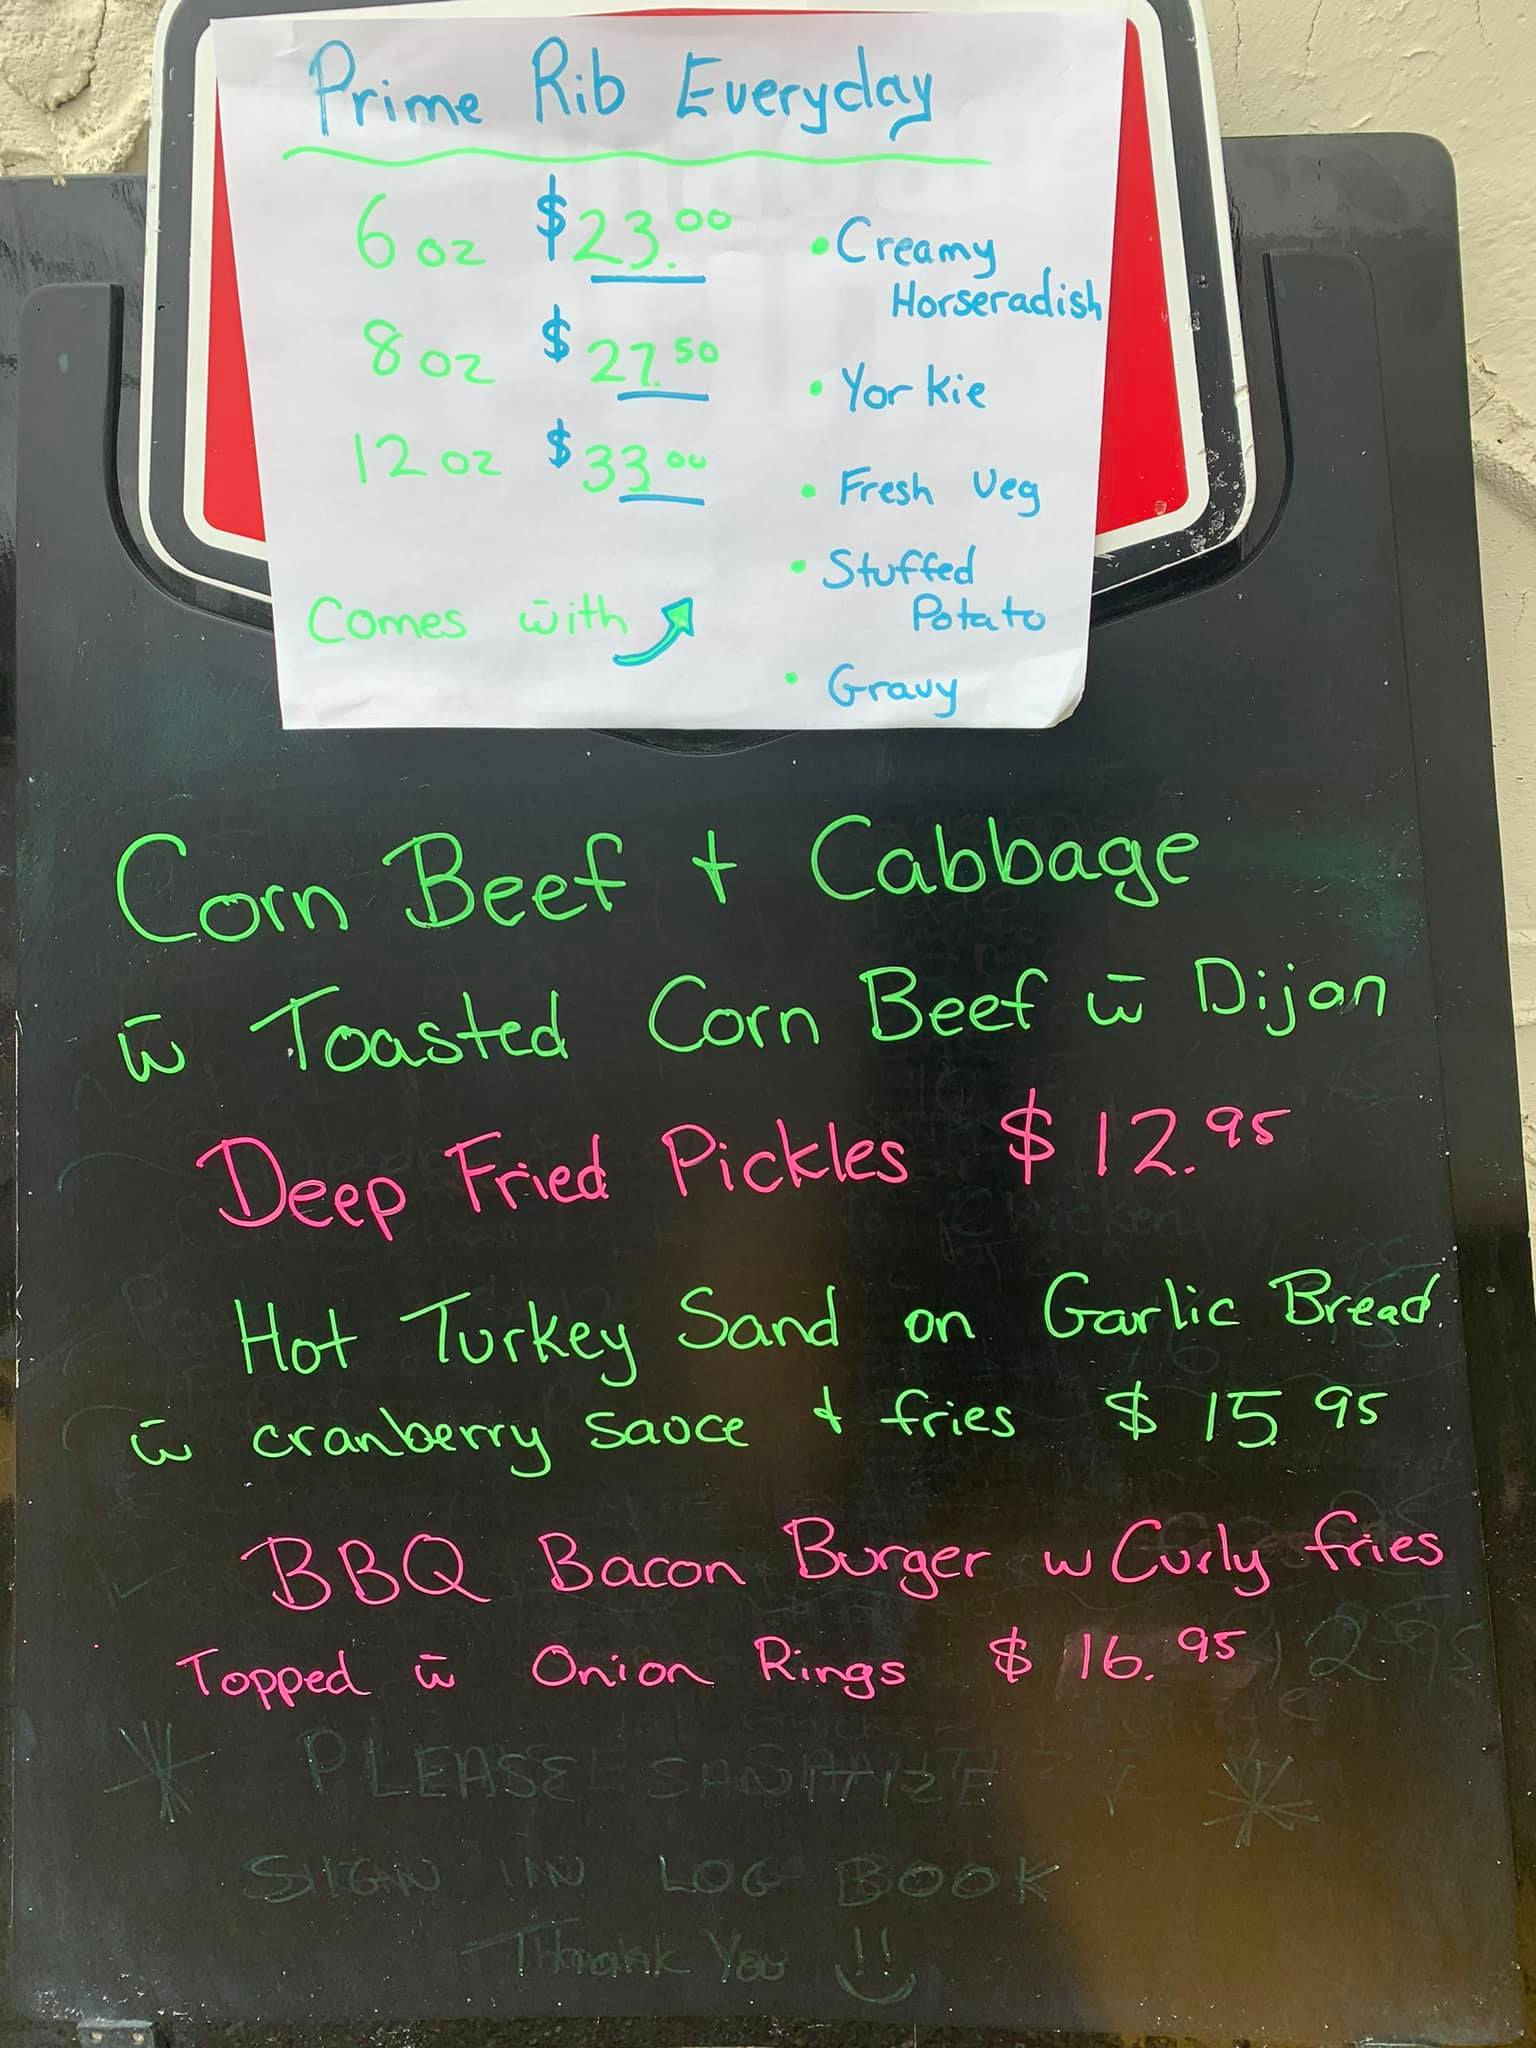 Prime Rib Everyday
6 oz $23.00
8 oz $27.50
12 oz $33.00
Comes w̄ith
• Creamy
Horseradish
• Yorkie
• Fresh Veg
• Stuffed
Potato
• Gravy
Corn Beef + Cabbage
w̄ Toasted Corn Beef w̄ Dijon
Deep Fried Pickles $12.95
Hot Turkey Sand on Garlic Bread
w̄ cranberry sauce + fries $15.95
BBQ Bacon Burger w Curly fries
Topped w̄ Onion Rings $16.95
PLEASE SANITIZE
SIGN IN LOG BOOK
Thank You